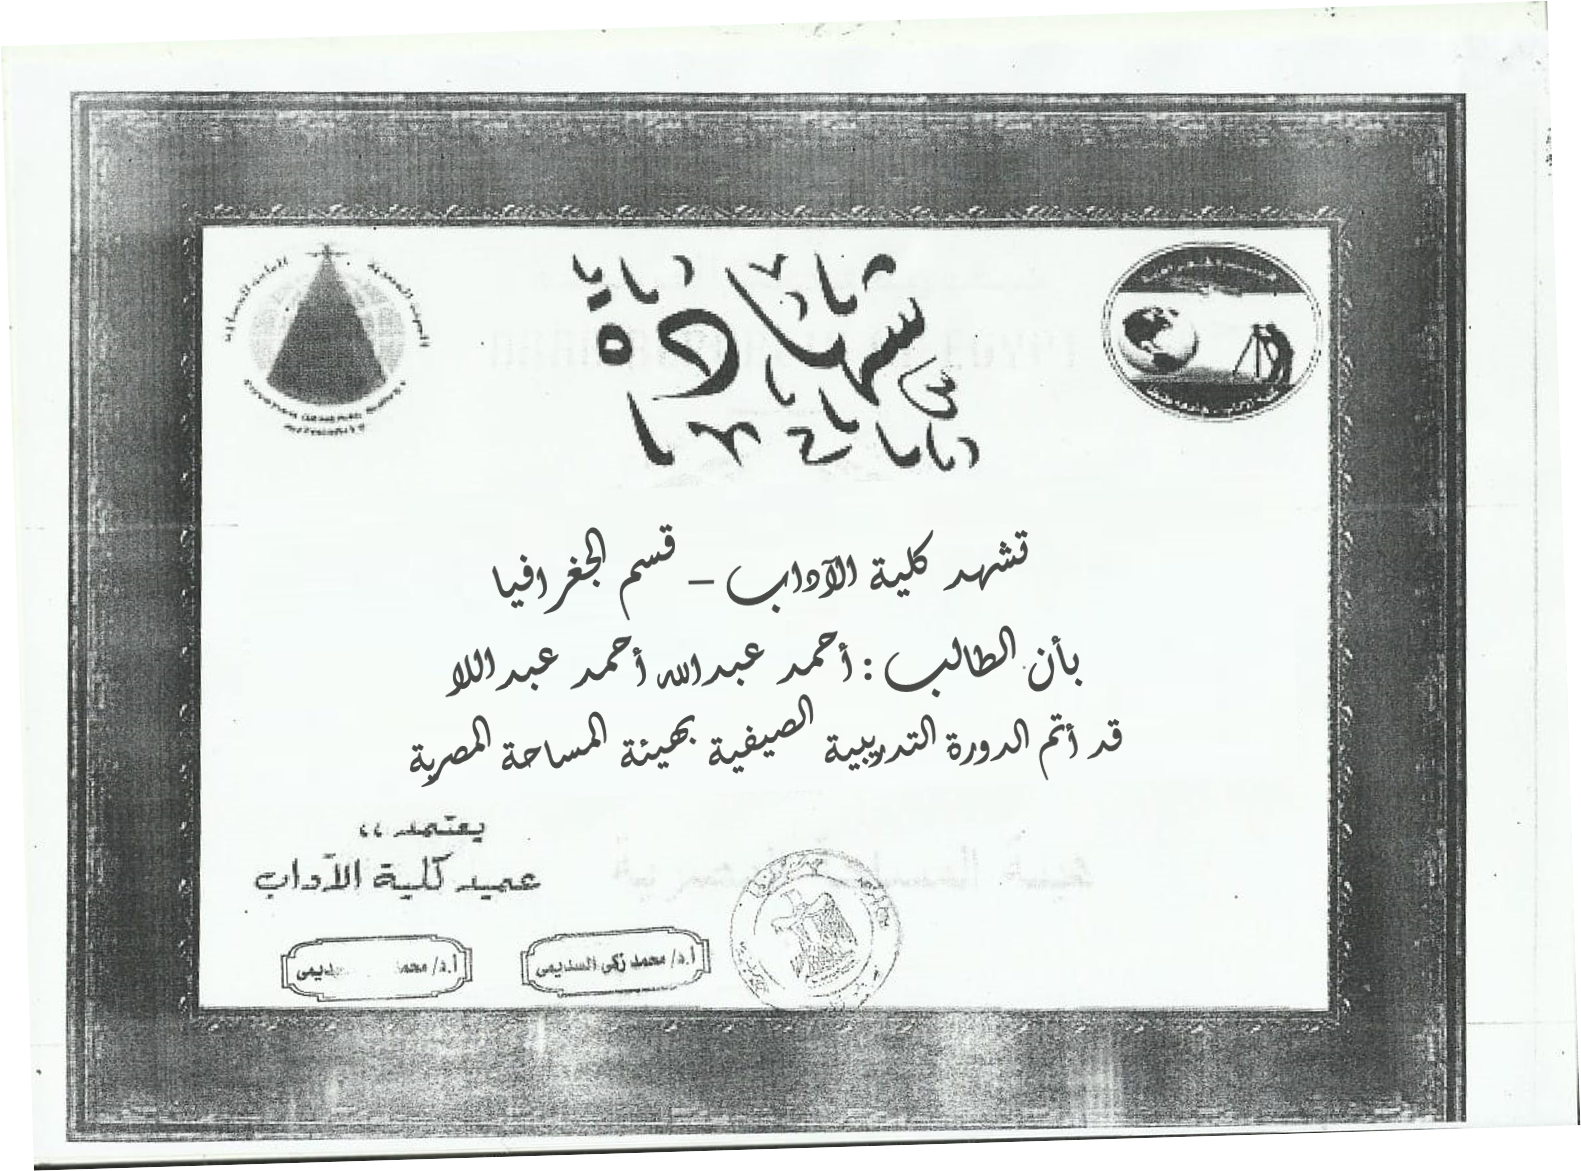 شهادة
تشهد كلية الآداب – قسم الجغرافيا
بأن الطالب : أحمد عبدالله أحمد عبداللا
قد أتم الدورة التدريبية الصيفية بهيئة المساحة المصرية
يعتمد ،،
عميد كلية الآداب
أ.د/ محمد زكى السديمى
أ.د/ محمد ديمى